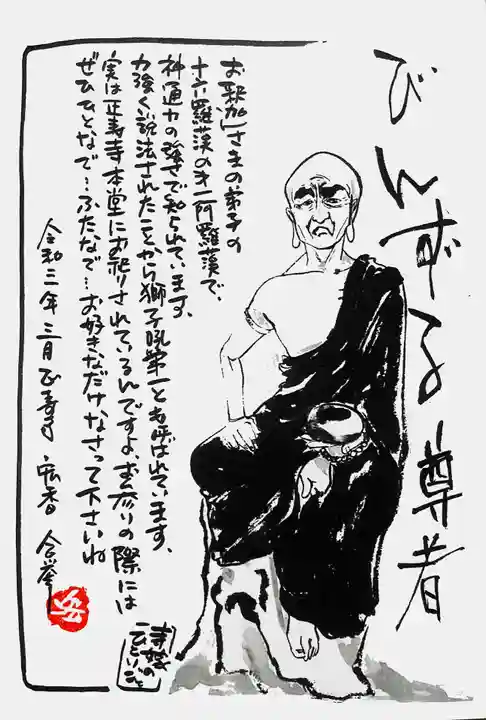 びんずる尊者
お釈迦さまの弟子の
十六羅漢の第一阿羅漢で、
神通力の強さで知られています。
力強く説法されたことから獅子吼第一とも呼ばれています。
実は正寿寺本堂にお祀りされているんですよ。お参りの際には
ぜひひとなで…ふたなで…お好きなだけなさって下さいね
令和三年三月 正寿寺 宏香 合掌
寺嫁の
ひとりごと